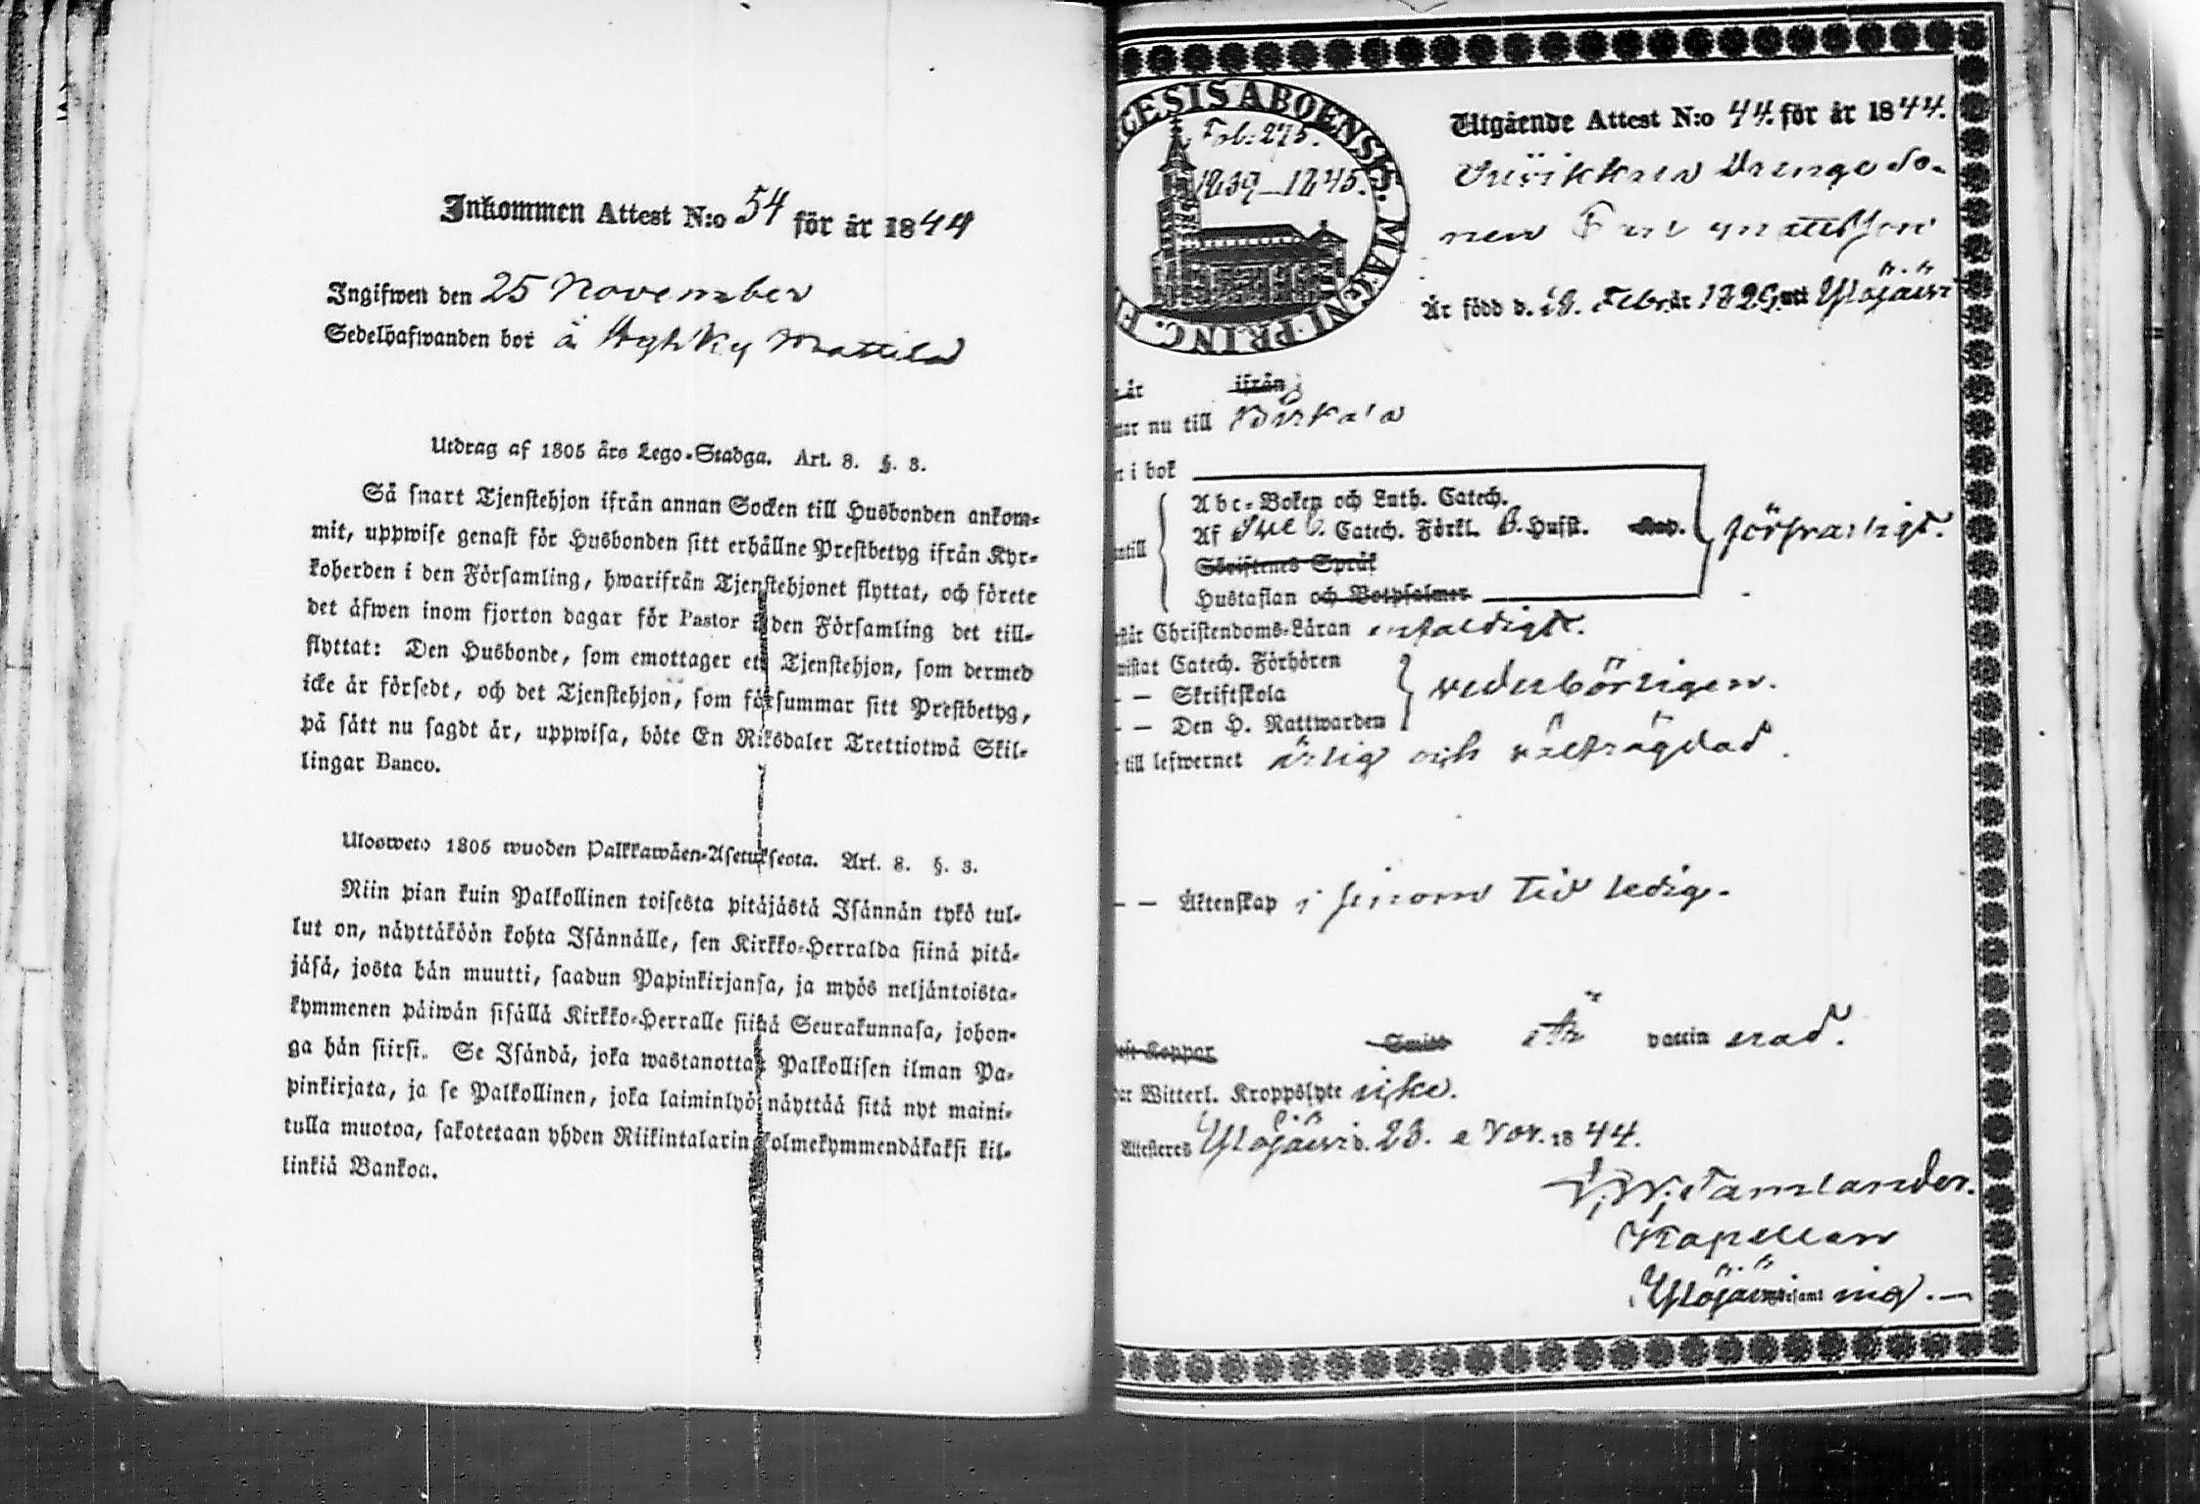 Inkommen Attest N:o 54 för år 1844
Ingifwen den 25 November
Sedelhafwanden bor å Hyhky Mattila
Utdrag af 1805 års Lego-Stadga. Art. 8. §. 3.
Så snart Tjenstehjon ifrån annan Socken till Husbonden ankom-
mit, uppwise genast för Husbonden sitt erhållne Prestbetyg ifrån Kyr-
koherden i den Församling, hwarifrån Tjenstehjonet flyttat, och förete
det äfwen inom fjorton dagar för Pastor i den Församling det till-
flyttat: Den Husbonde, som emottager ett Tjenstehjon, som dermed
icke är försedt, och det Tjenstehjon, som försummar sitt Prestbetyg,
på sätt nu sagdt är, uppwisa, böte En Riksdaler Trettiotwå Skil-
lingar Banco.
Ulosweto 1805 wuoden Palkkawäen-Asetuksesta. Art. 8. §. 3.
Niin pian kuin Palkollinen toisesta pitäjästä Isännän tykö tul-
lut on, näyttäköön kohta Isännälle, sen Kirkko-Herralda siinä pitä-
jäsä, josta hän muutti, saadun Papinkirjansa, ja myös neljäntoista-
kymmenen päiwän sisällä Kirkko-Herralle siinä Seurakunnasa, johon-
ga hän siirsi. Se Isändä, joka wastanottaa Palkollisen ilman Pa-
pinkirjata, ja se Palkollinen, joka laiminlyö näyttää sitä nyt maini-
tulla muotoa, sakotetaan yhden Riikintalarin kolmekymmendäkaksi kil-
linkiä Bankoa.
ECESIS ABOENSIS. MAGNI PRINC. F
Fol: 275.
1839–1845.
Utgående Attest N:o 44. för år 1844.
Drenge So-
nen Mattsson
Är född d. Febr. år 182 uti Ylöjärvi
år ifrån
nu till Birkala
i bok
Abc-Boken och Luth. Catech.
Af Sveb. Catech. Förkl. B. Hust.
Skriftenes Språk
Hustaflan och Botpsalmer
försvarligt.
Christendoms-Läran enfaldigt.
Catech. Förhören
— Skriftskola
— Den H. Nattwarden
vederbörligen.
till lefwernet ärlig och välfrägdad.
— Äktenskap i sinom tid ledig.
Koppor Smitt är vaccinerad.
Witterl. Kroppslyte icke.
Attesteres Ylöjärvi d. 23. Nov. 1844.
Tamlander.
Kapellan
Ylöjärvi samt ing.—